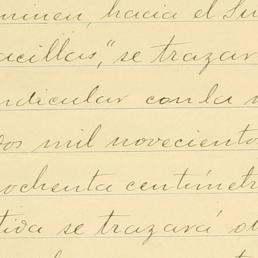 hacia el Su
acillas," se trazar
ndicular con la
dos mil novecientos
ochenta centímetr
tida se trazará o